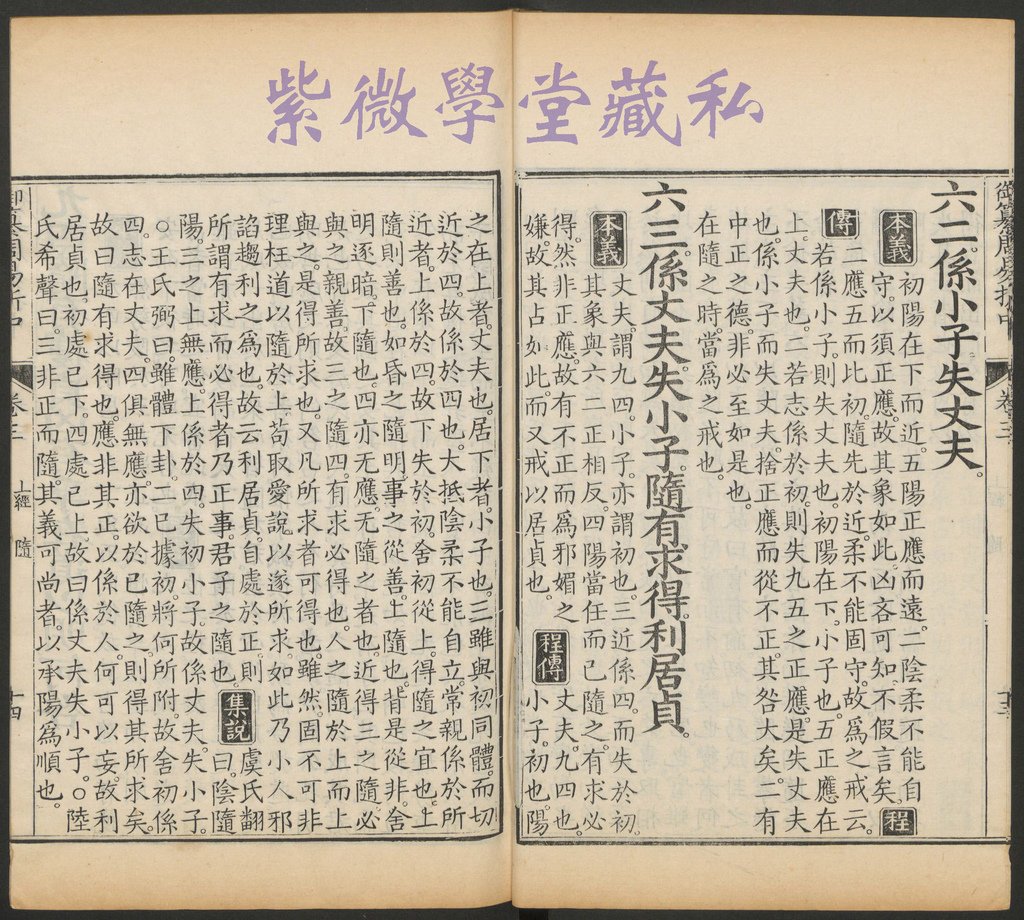 紫微學堂藏私
御纂周易折中 卷三
六二係小子失丈夫。
本義 初陽在下而近。五陽正應而遠。二陰柔不能自
守。以須正應。故其象如此。凶吝可知。不假言矣。 程
傳 二應五而比初。隨先於近。柔不能固守。故爲之戒云。
若係小子。則失丈夫也。初陽在下。小子也。五正應在
上。丈夫也。二若志係於初。則失九五之正應。是失丈夫
也。係小子而失丈夫。捨正應而從不正。其咎大矣。二有
中正之德。非必至如是也。
在隨之時。當爲之戒也。
六三係丈夫失小子。隨有求得。利居貞。
本義 丈夫。謂九四。小子。亦謂初也。三近係四。而失於初。
其象與六二正相反。四陽當任而已隨之。有求必
得。然非正應。故有不正而爲邪媚之 程傳 丈夫。九四也。
嫌。故其占如此。而又戒以居貞也。 小子。初也。陽
之在上者。丈夫也。居下者。小子也。三雖與初同體。而切
近於四。故係於四也。大抵陰柔不能自立。常親係於所
近者。上係於四。故下失於初。舍初從上。得隨之宜也。上
隨則善也。如昏之隨明。事之從善。上隨也。背是從非。舍
明逐暗。下隨也。四亦无應。无隨之者也。近得三之隨。必
與之親善。故三之隨四。有求必得也。人之隨於上。而上
與之。是得所求也。又凡所求者可得也。雖然。固不可非
理枉道以隨於上。苟取愛說以遂所求。如此乃小人邪
諂趨利之爲也。故云利居貞。自處於正。則 集說 虞氏翻
所謂有求而必得者。乃正事。君子之隨也。 曰。陰隨
陽。三之上無應。上係於四。失初小子。故係丈夫。失小子。
○王氏弼曰。雖體下卦。二已據初。將何所附。故舍初係
四。志在丈夫。四俱無應。亦欲於已隨之。則得其所求矣。
故曰隨有求得也。應非其正。以係於人。何可以妄。故利
居貞也。初處已下。四處已上。故曰係丈夫失小子。○陸
氏希聲曰。三非正而隨。其義可尚者。以承陽爲順也。
卷三 上經 隨 十四